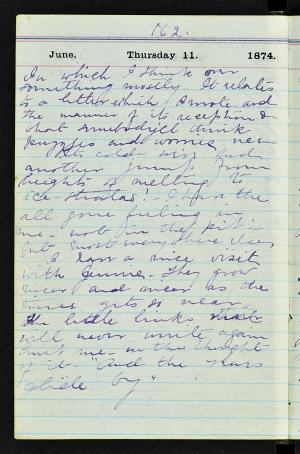 162.
June. Thursday 11. 1874.
In which I think over
something mostly. It relates
to a letter which I wrote and
the manner of its reception &
what somebody
and worries
cold
another jump from
heights & melting to
ice-
all gone feeling in
me - not in the
but most everywhere else.
I
a nice visit
with Jennie. They grow
nicer and nicer as the
times gets so near.
The little links
will never unite again
hurt me - in the thought
of it. "And the years
glide by"